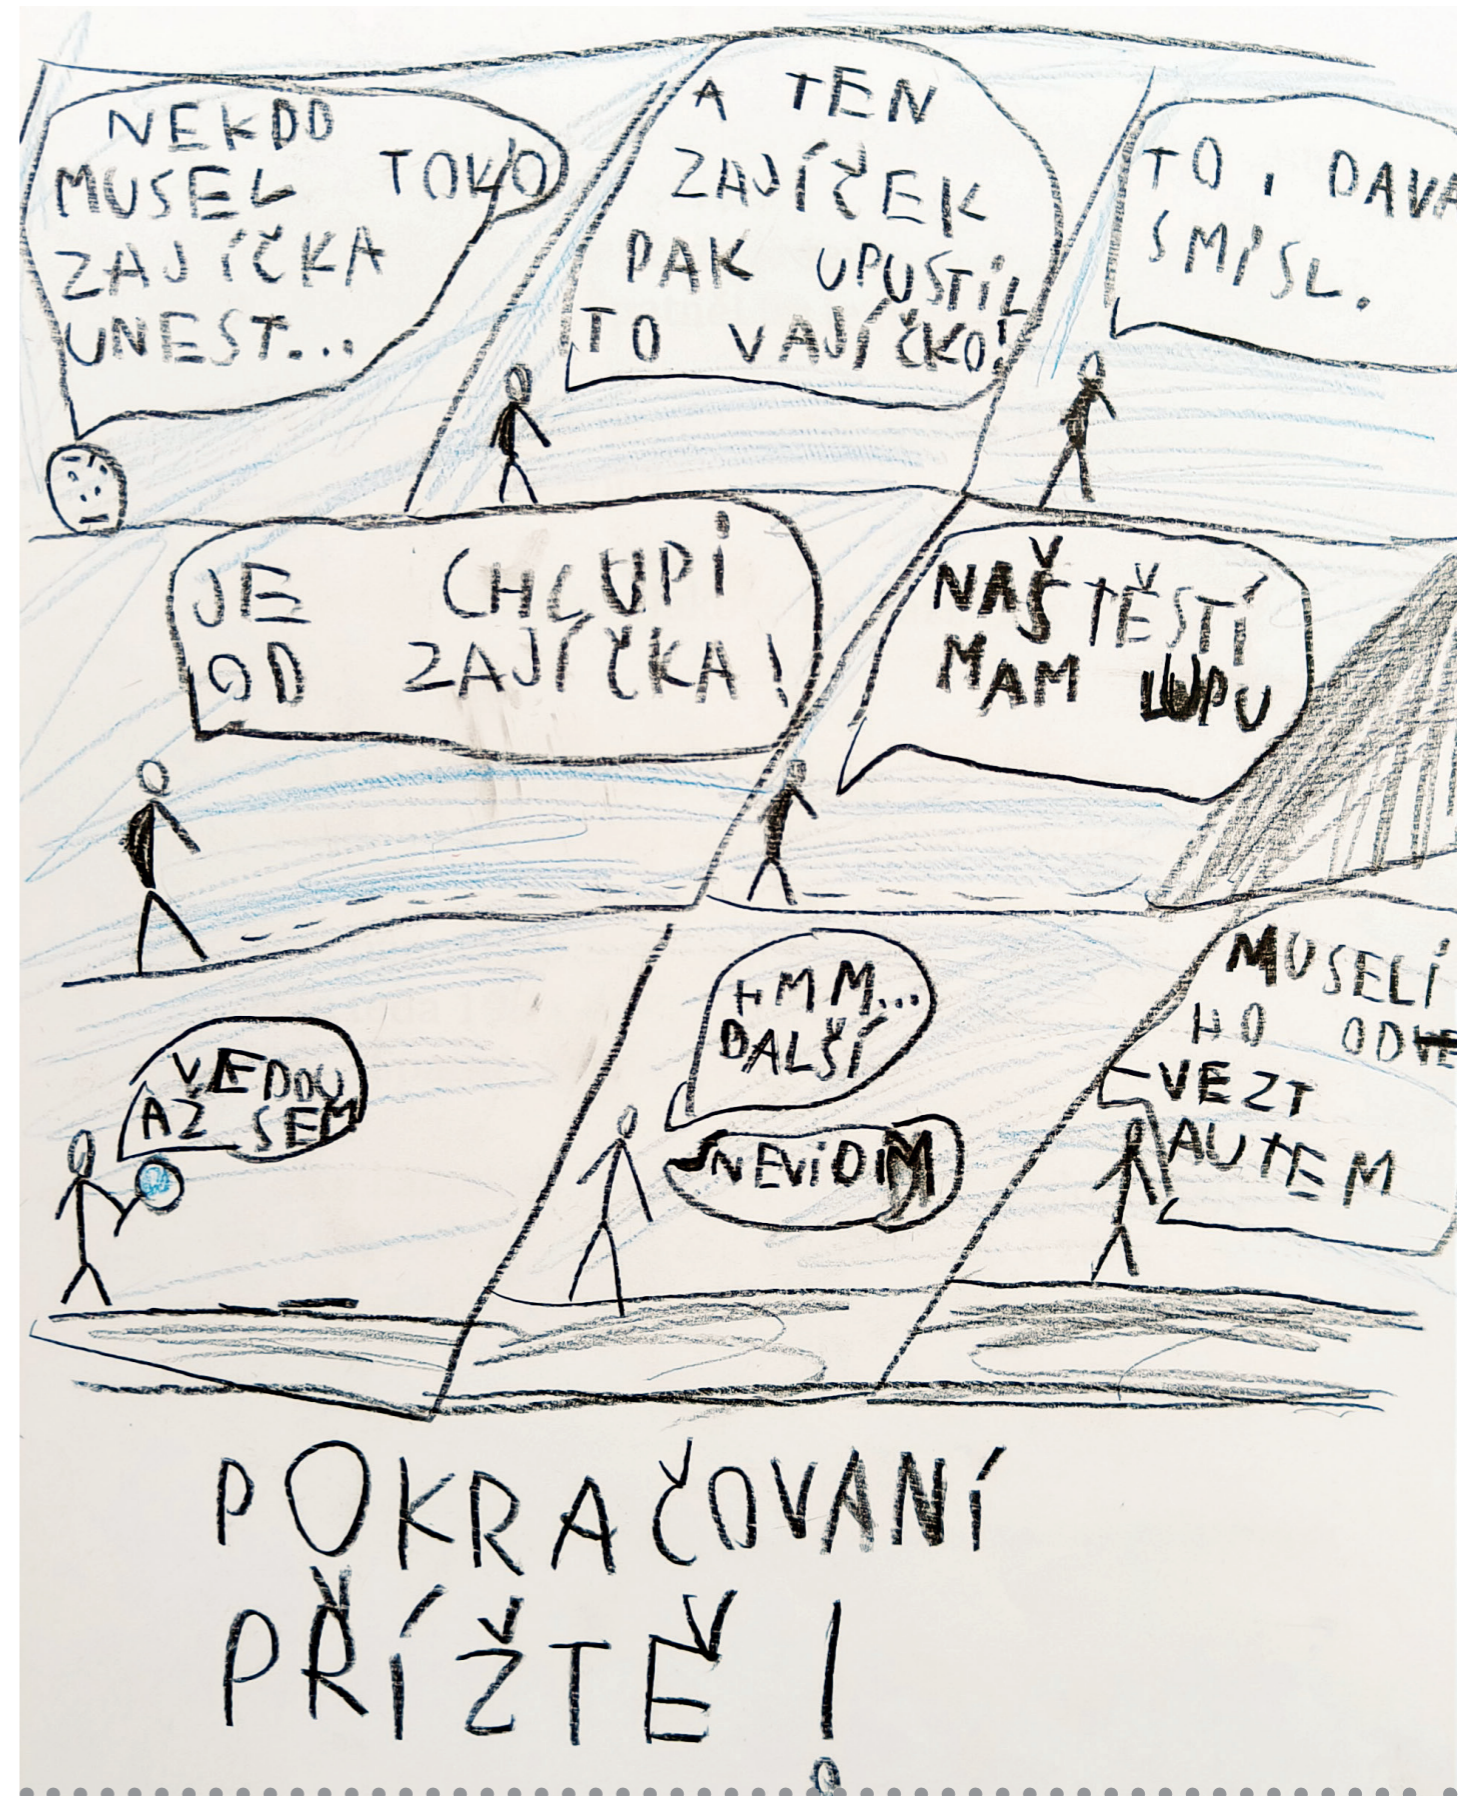 NEKDO
MUSEL TOHO
ZAJÍČKA
UNEST...
A TEN
ZAJÍČEK
PAK UPUSTIL
TO VAJÍČKO!
TO, DAVA
SMISL.
JE CHLUPI
OD ZAJÍČKA!
NAŠTĚSTÍ
MAM LUPU
VEDOU
AŽ SEM
HMM...
DALŠÍ
NEVIDIM
MUSELI
HO OD
VEZT
AUTEM
POKRAČOVANÍ
PŘÍŽTĚ!